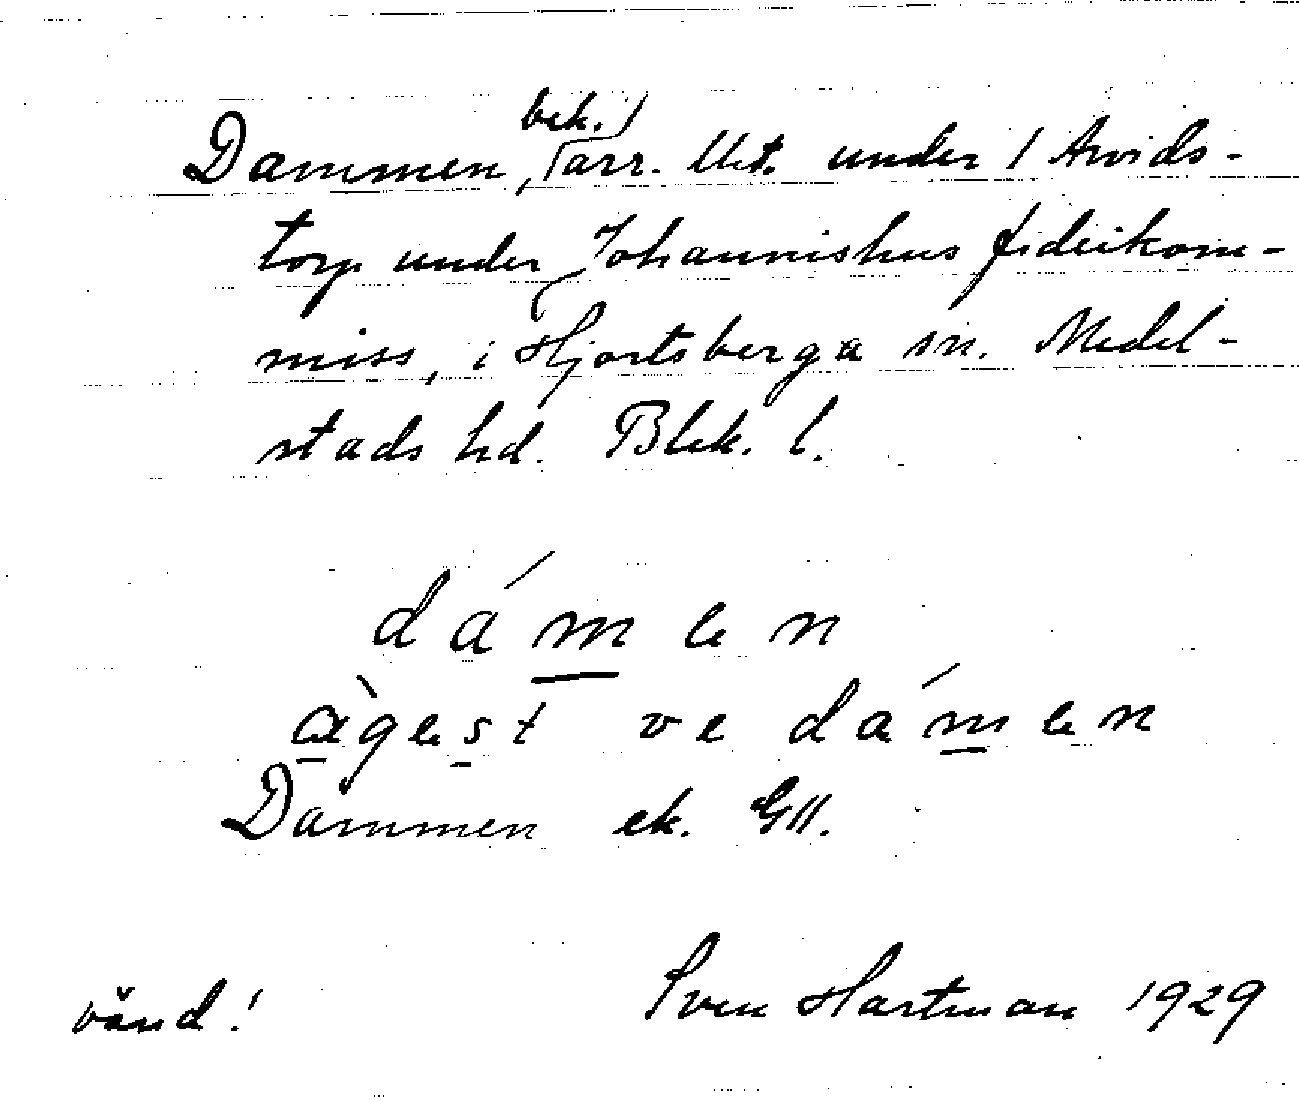 Dammen, bek. arr. Uet. under 1 Arvids-
torp under Johannishus fideikom-
miss, i Hjortsberga sn. Medel-
stads hd. Blek. l.
dámen
àgest ve dámen
Dammen ek. Gll.
vänd! Sven Hartman 1929